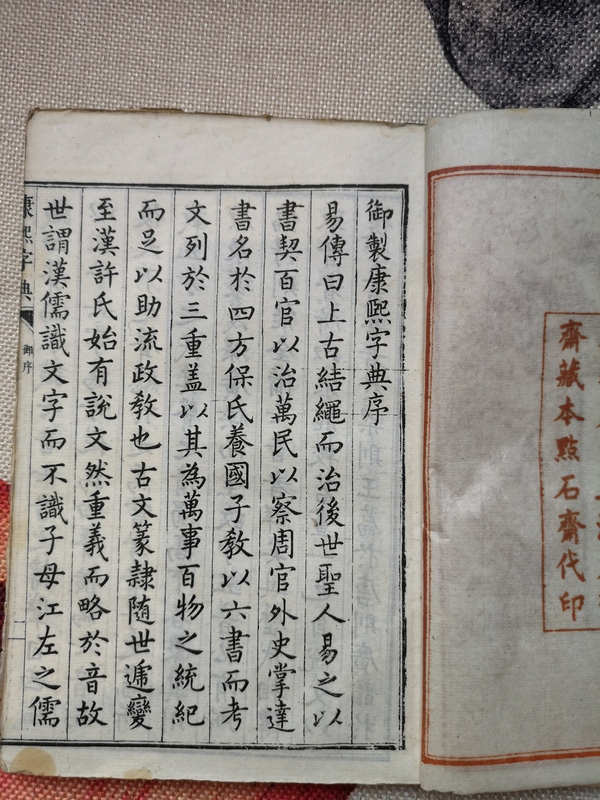 齋藏本點石齋代印
御製康熙字典序
易傳曰上古結繩而治後世聖人易之以
書契百官以治萬民以察周官外史掌達
書名於四方保氏養國子教以六書而考
文列於三重盖以其為萬事百物之統紀
而足以助流政教也古文篆隸隨世遞變
至漢許氏始有說文然重義而略於音故
世謂漢儒識文字而不識子母江左之儒
康熙字典
御序